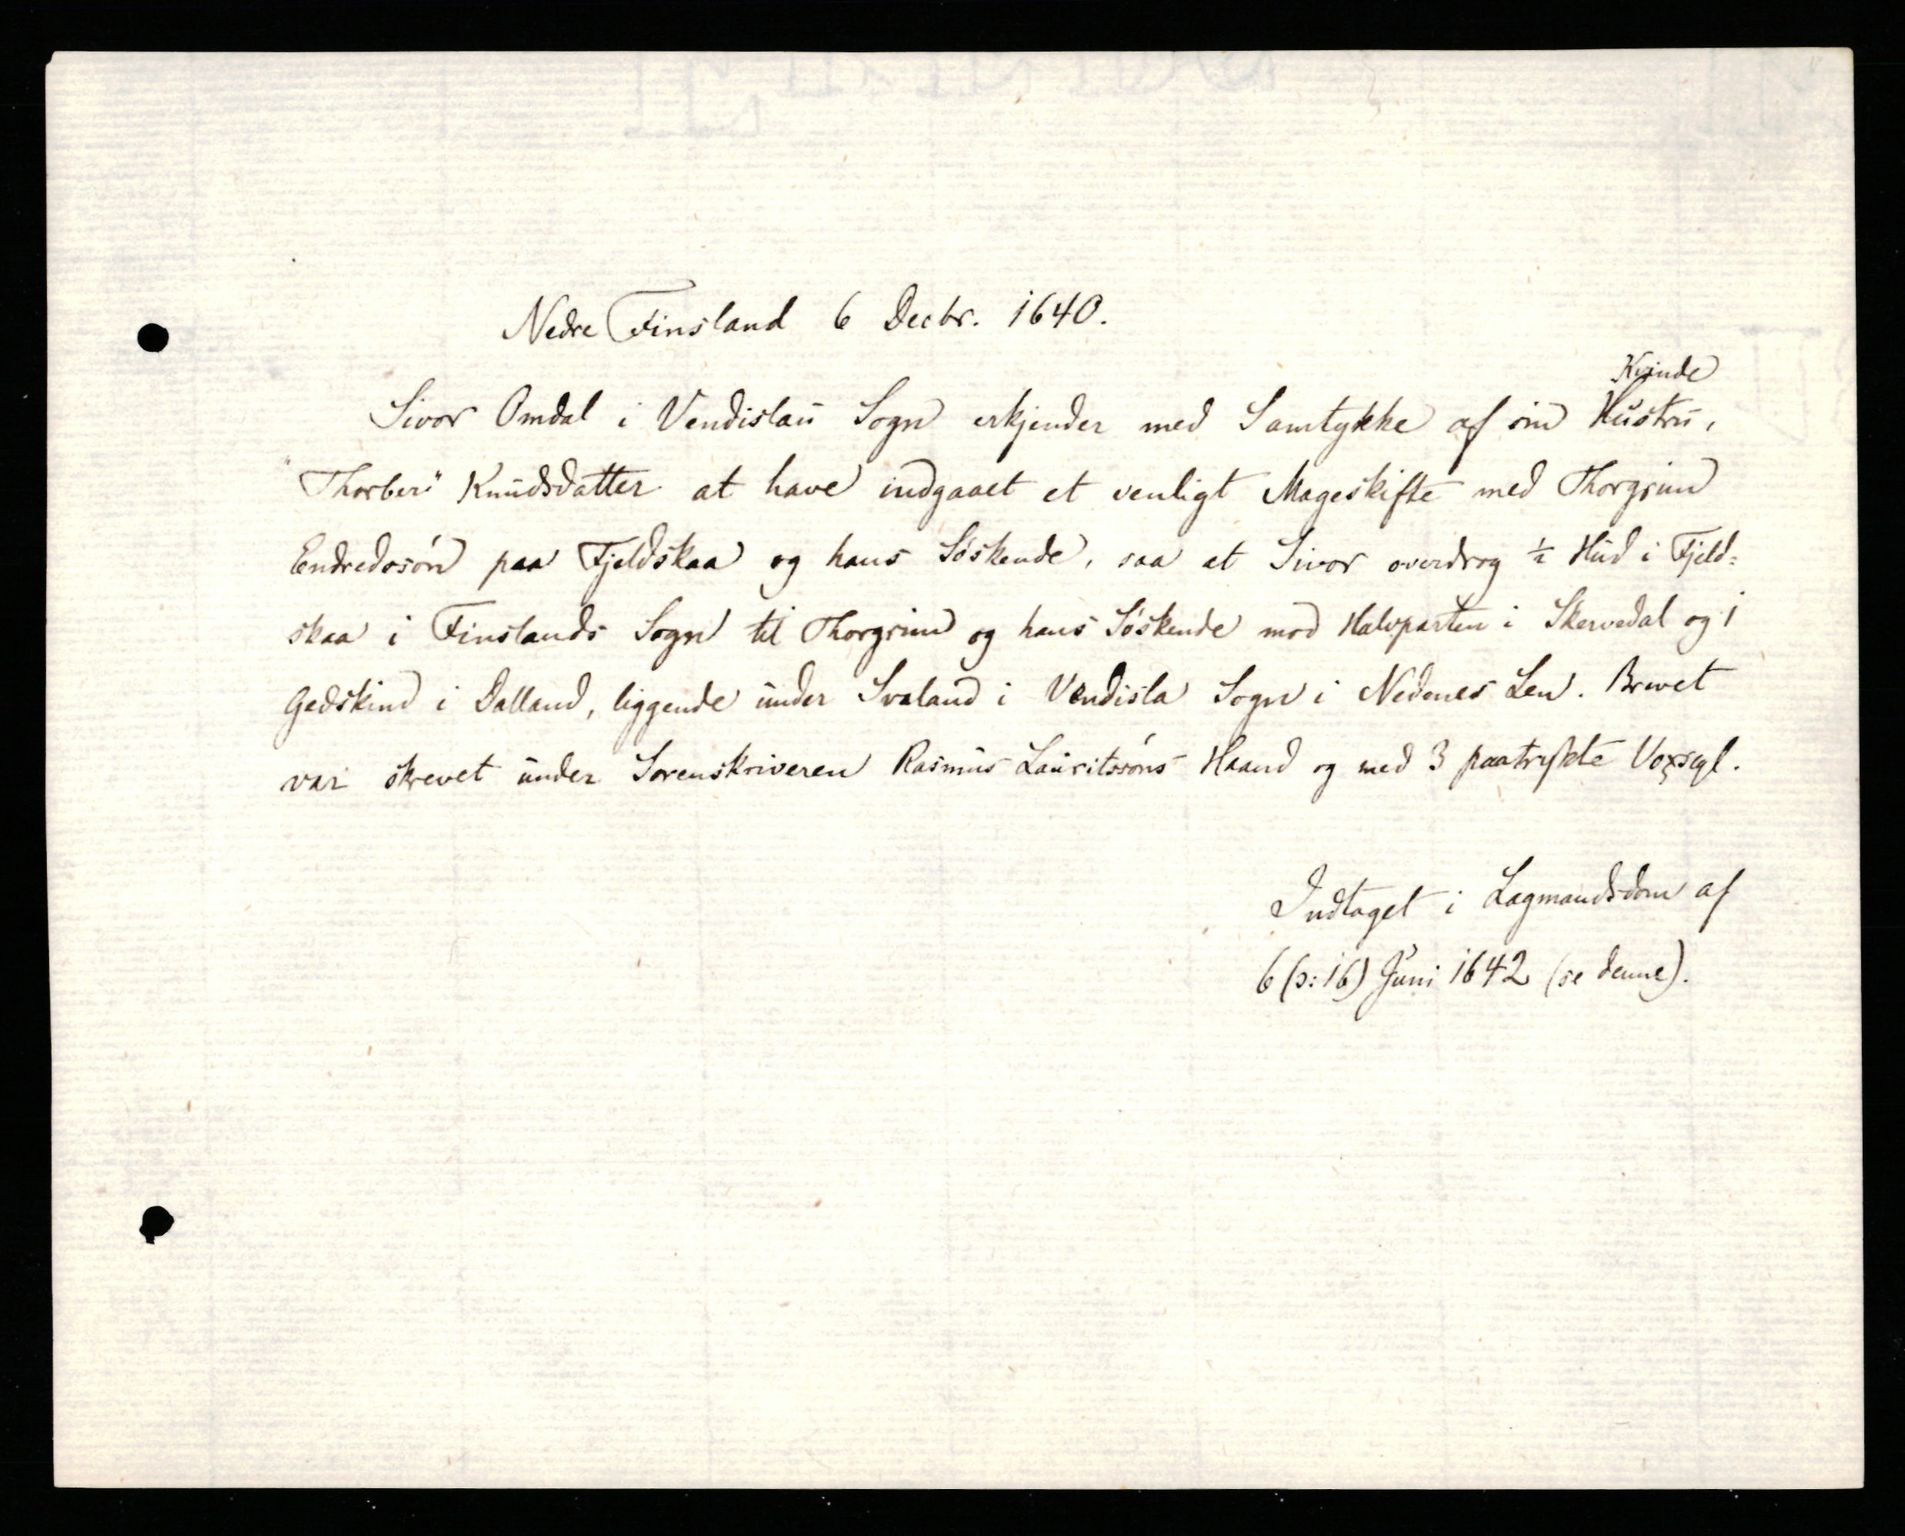 Nedre Finsland 6 Decbr. 1640.
Kvinde
Sivor Omdal i Vendislau Sogn erkjender med Samtykke af sin Hustru,
"Thorber" Knudsdatter at have indgaaet et venligt Mageskifte med Thorgrim
Endredssón paa Fjeldskaa og hans Søskende, saa at Sivor overdrog ½ Hud i Fjeld=
skaa i Finslands Sogn til Thorgrim og hans Søskende mod Halvparten i Skervedal og 1
Gedskind i Dalland, liggende under Svaland i Vendisla Sogn i Nedenes Len. Brevet
var skrevet under Sorenskriveren Rasmus Lauritssóns Haand og med 3 paatrykte Voxsegl.
Indtaget i Lagmandsdom af
6 (ɔ: 16) Juni 1642 (se denne).